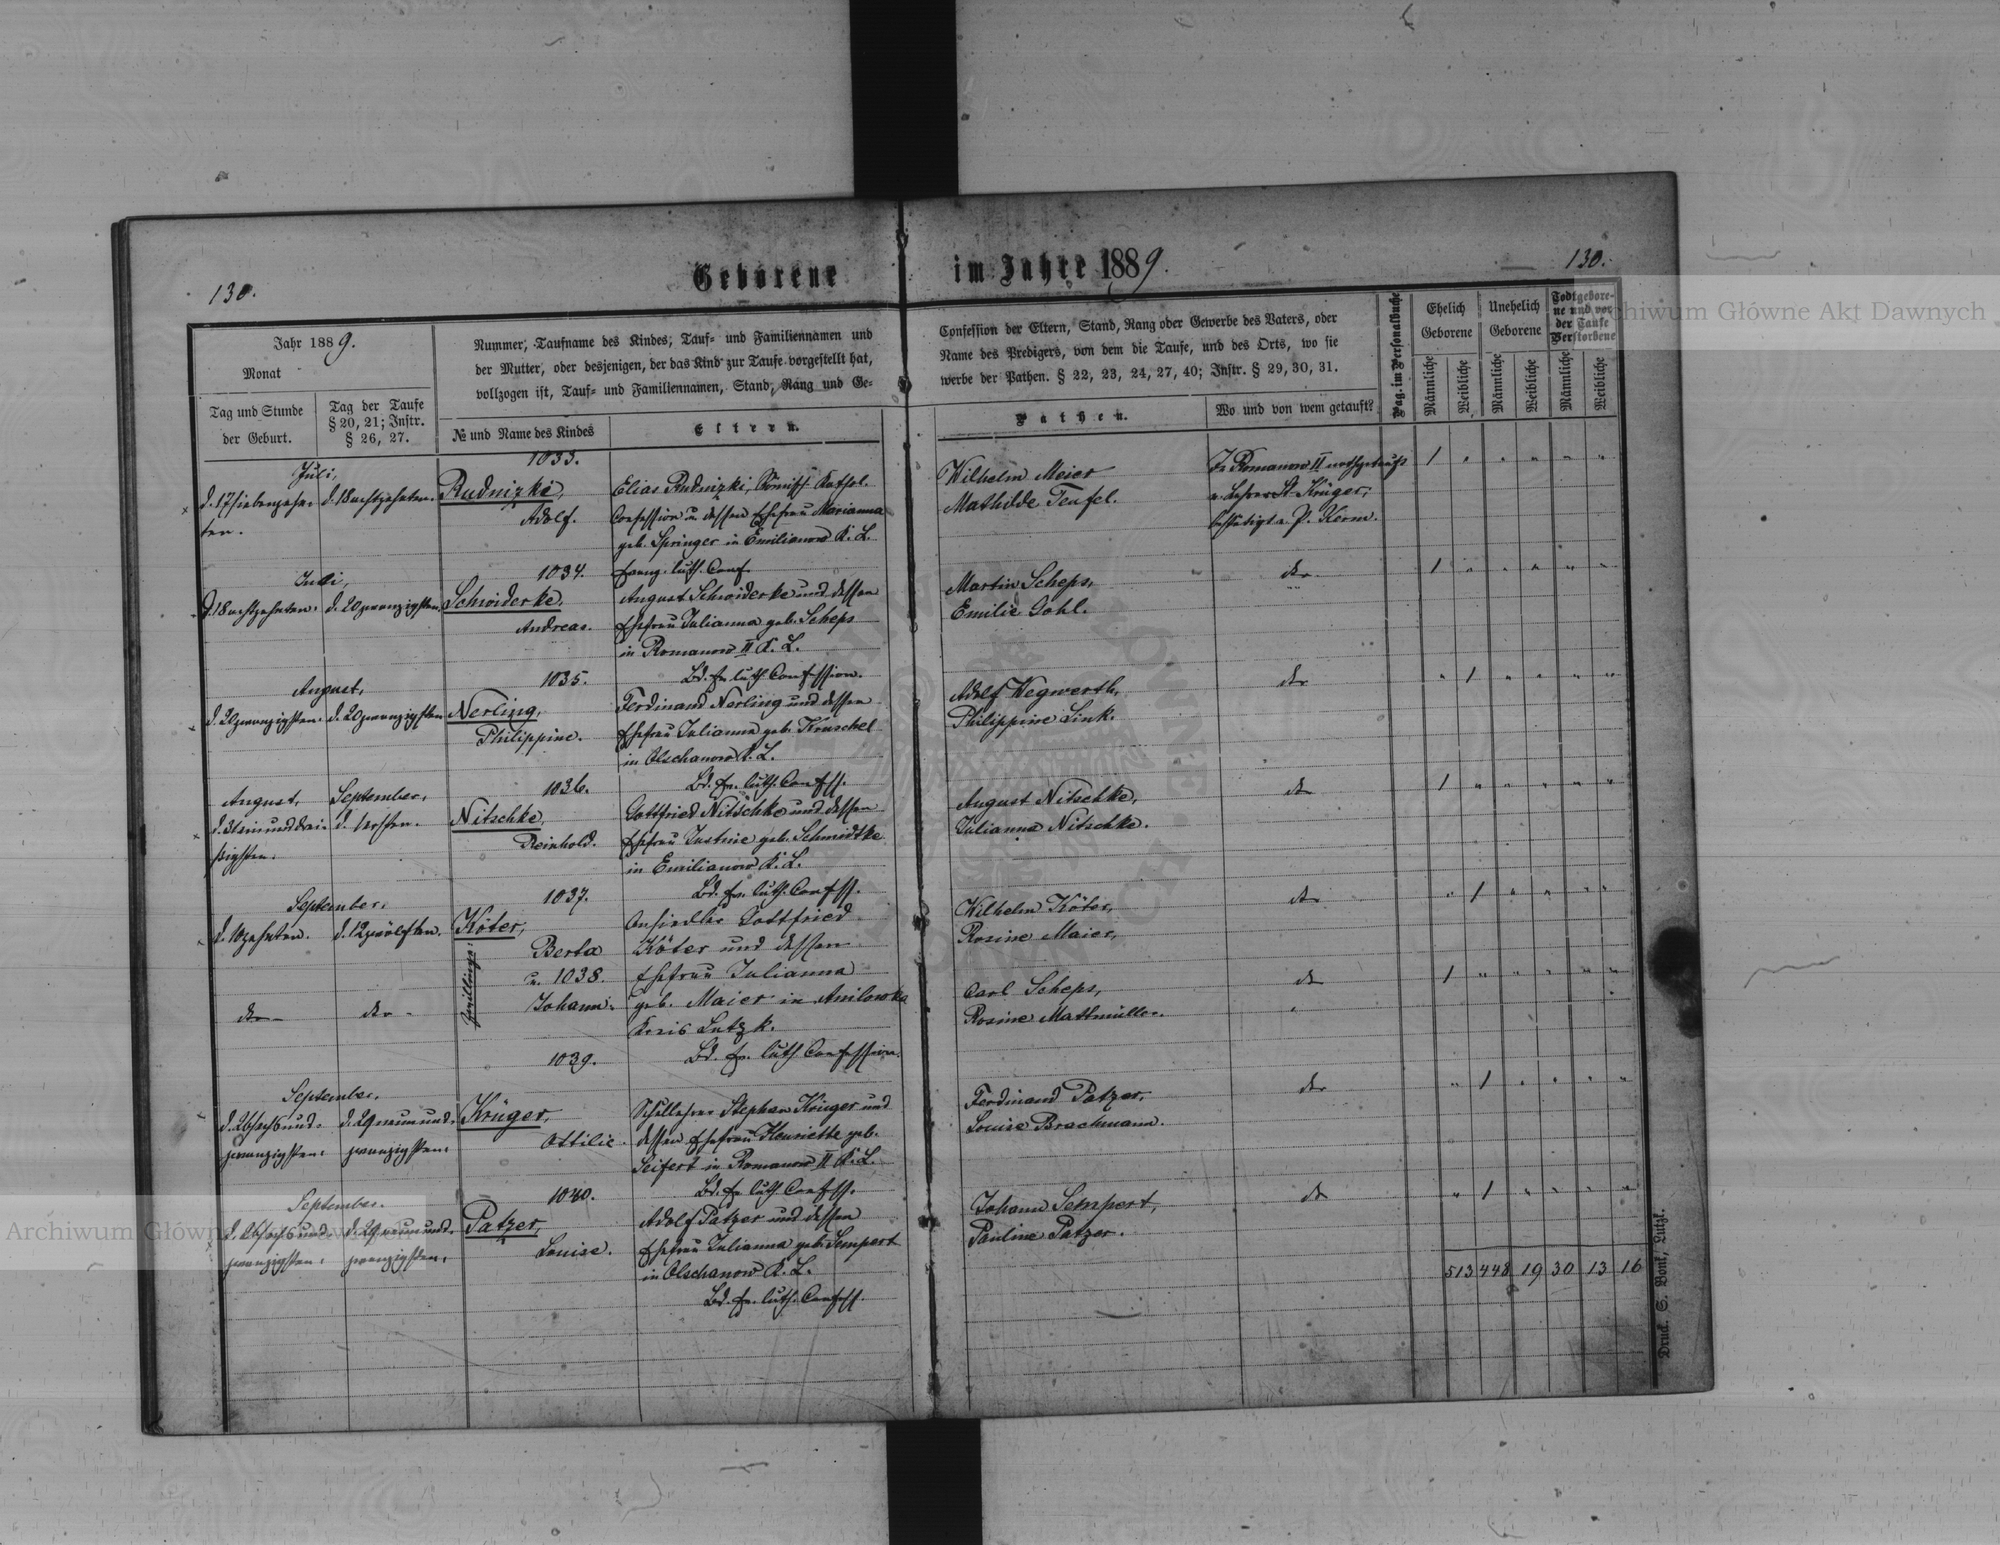 130.
Geborene
im Jahre 1889.
130.
Archiwum Główne Akt Dawnych
Jahr 1889.
Monat
Tag und Stunde
der Geburt.
Tag der Taufe
§ 20, 21; Instr.
§ 26, 27.
Nummer, Taufname des Kindes; Tauf- und Familiennamen und
der Mutter, oder desjenigen, der das Kind zur Taufe vorgestellt hat,
vollzogen ist, Tauf- und Familiennamen, Stand, Rang und Ge-
№ und Name des Kindes
Eltern.
Confession der Eltern, Stand, Rang oder Gewerbe des Vaters, oder
Name des Predigers, von dem die Taufe, und des Orts, wo sie
werbe der Pathen. § 22, 23, 24, 27, 40; Instr. § 29, 30, 31.
Pathen.
Wo und von wem getauft?
Pag. im Personalbuche
Ehelich
Geborene
Unehelich
Geborene
Todtgebore-
ne und vor
der Taufe
Verstorbene
Männliche
Weibliche
Männliche
Weibliche
Männliche
Weibliche
Juli,
d. 17 siebenzehn-
ten.
d. 18 achtzehnten.
1033.
Rudnizki,
Adolf.
Elias Rudnizki, Römisch Kathol.
Confession u. dessen Ehefrau Marianna
geb. Springer in Emilianow K. L.
Evang. luth. Conf.
Wilhelm Meier
Mathilde Teufel.
In Romanow II nothgetauft
v. Lehrer St. Krüger;
bestätigt v. P. Kerm.
1
Juli,
d. 18 achtzehnten.
d. 20 zwanzigsten.
1034.
Schwiderke,
Andreas.
August Schwiderke und dessen
Ehefrau Julianna geb. Scheps
in Romanow II K. L.
Bd. Ev. luth. Confession.
Martin Scheps,
Emilie Gohl.
dto
1
August,
d. 20 zwanzigsten.
d. 20 zwanzigsten
1035.
Nerling,
Philippine.
Ferdinand Nerling und dessen
Ehefrau Julianna geb. Kruschel
in Olschanow K. L.
Bd. Ev. luth. Confess.
Adolf Wegwerth,
Philippine Link.
dto
1
August,
d. 31 einunddrei-
ßigsten.
September,
d. 1 ersten.
1036.
Nitschke,
Reinhold.
Gottfried Nitschke und dessen
Ehefrau Justine geb. Schmidtke
in Emilianow K. L.
Bd. Ev. luth. Confess.
August Nitschke,
Julianna Nitschke.
dto
1
September,
d. 10 zehnten.
d. 12 zwölften.
1037.
Köter,
Berta
u. 1038.
Johann.
Zwillinge:
Ansiedler Gottfried
Köter und dessen
Ehefrau Julianna
geb. Maier in Anilowka
Kreis Lutzk.
Bd. Ev. luth Confession.
Wilhelm Köter,
Rosine Maier,
dto
1
dto
dto
Carl Scheps,
Rosine Mattmüller.
dto
1
September,
d. 26 sechsund-
zwanzigsten.
d. 29 neunund-
zwanzigsten.
1039.
Krüger,
Ottilie.
Schullehrer Stephan Krüger und
dessen Ehefrau Henriette geb.
Seifert in Romanow II K. L.
Bd. Ev. luth. Confess.
Ferdinand Patzer,
Louise Brachmann.
dto
1
September.
d. 26 sechsund-
zwanzigsten.
d. 29 neunund-
zwanzigsten.
1040.
Patzer,
Louise.
Adolf Patzer und dessen
Ehefrau Julianna geb. Sempert
in Olschanow K. L.
Bd. Ev. luth. Confess.
Johann Sempert,
Pauline Patzer.
dto
1
513 448 19 30 13 16
Druck. S. Bonk, Lutzk.
Archiwum Główne Akt Dawnych